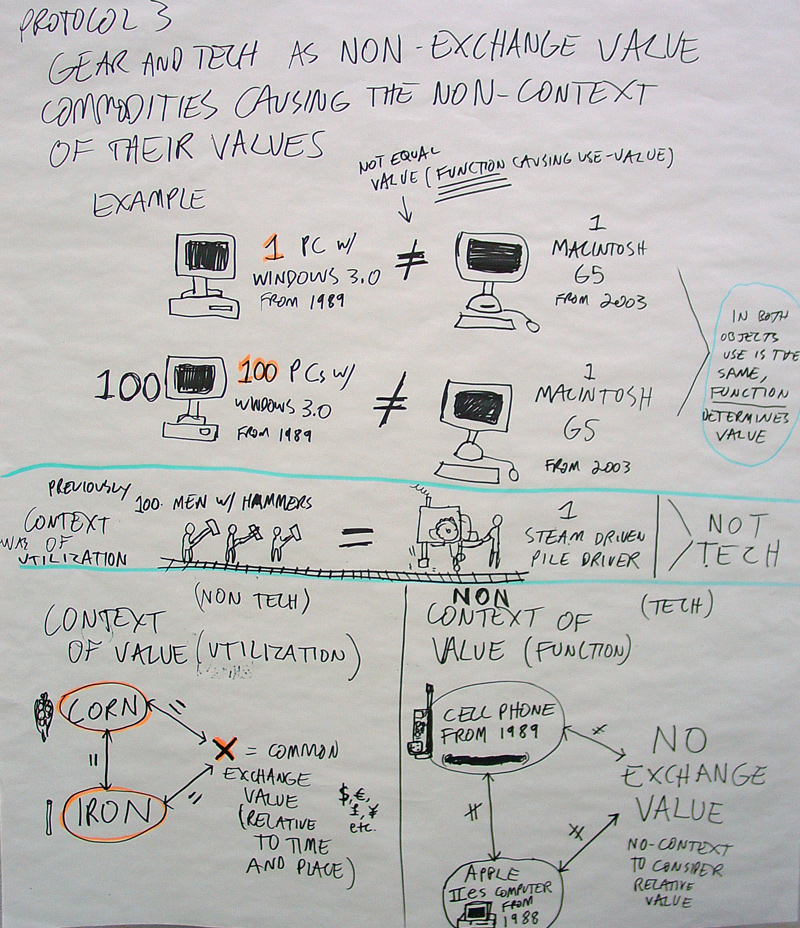 PROTOCOL 3
GEAR AND TECH AS NON-EXCHANGE VALUE
COMMODITIES CAUSING THE NON-CONTEXT
OF THEIR VALUES
NOT EQUAL
VALUE (FUNCTION CAUSING USE-VALUE)
EXAMPLE
1 PC W/
WINDOWS 3.0
FROM 1989
≠
1
MACINTOSH
G5
FROM 2003
100
100 PCs W/
WINDOWS 3.0
FROM 1989
≠
1
MACINTOSH
G5
FROM 2003
IN BOTH
OBJECTS
USE IS THE
SAME,
FUNCTION
DETERMINES
VALUE
PREVIOUSLY
CONTEXT
WAS OF
UTILIZATION
100 MEN W/ HAMMERS
=
1
STEAM DRIVEN
PILE DRIVER
NOT
TECH
(NON TECH)
CONTEXT
OF VALUE (UTILIZATION)
CORN
=
=
IRON
=
X = COMMON
EXCHANGE
VALUE
(RELATIVE
TO TIME
AND PLACE)
$, €,
£, ¥
etc.
NON
(TECH)
CONTEXT OF
VALUE (FUNCTION)
CELL PHONE
FROM 1989
≠
≠
≠
APPLE
IIes COMPUTER
FROM
1988
NO
EXCHANGE
VALUE
NO-CONTEXT
TO CONSIDER
RELATIVE
VALUE